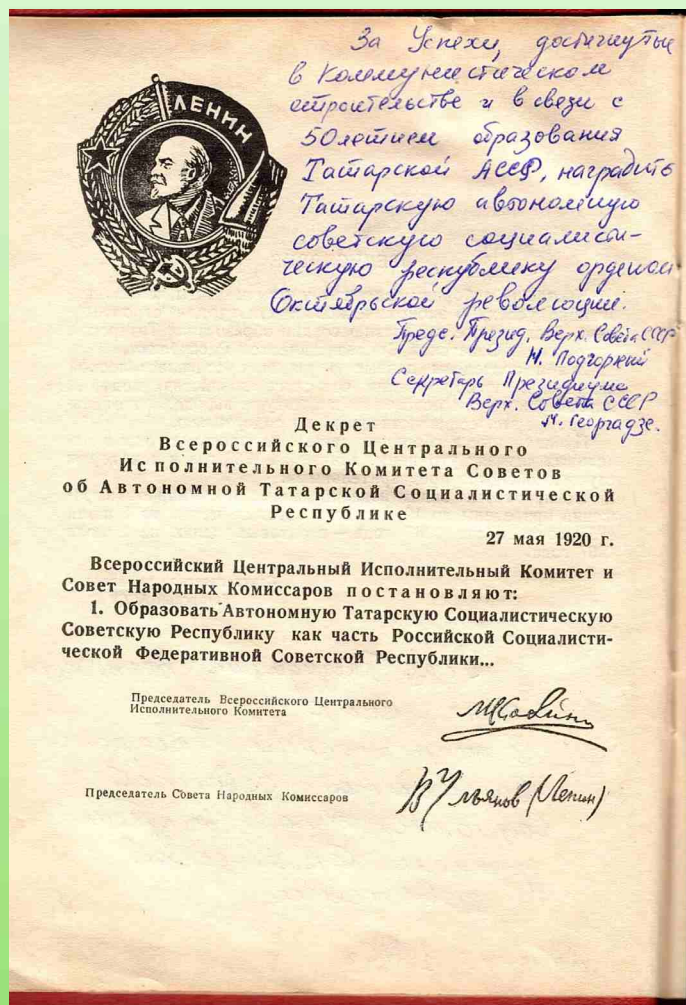 ЛЕНИН
За Успехи, достигнутые
в Коммунистическом
строительстве и в связи с
50летием образования
Татарской АССР, наградить
Татарскую автономную
советскую социалисти-
ческую республику орденом
Октябрьской революции.
Предс. Презид. Верх. Совета СССР
Н. Подгорный
Секретарь Президиума
Верх. Совета СССР
М. Георгадзе.
Декрет
Всероссийского Центрального
Исполнительного Комитета Советов
об Автономной Татарской Социалистической
Республике
27 мая 1920 г.
Всероссийский Центральный Исполнительный Комитет и
Совет Народных Комиссаров постановляют:
1. Образовать Автономную Татарскую Социалистическую
Советскую Республику как часть Российской Социалисти-
ческой Федеративной Советской Республики...
Председатель Всероссийского Центрального
Исполнительного Комитета
МКалинин
Председатель Совета Народных Комиссаров
В Ульянов (Ленин)